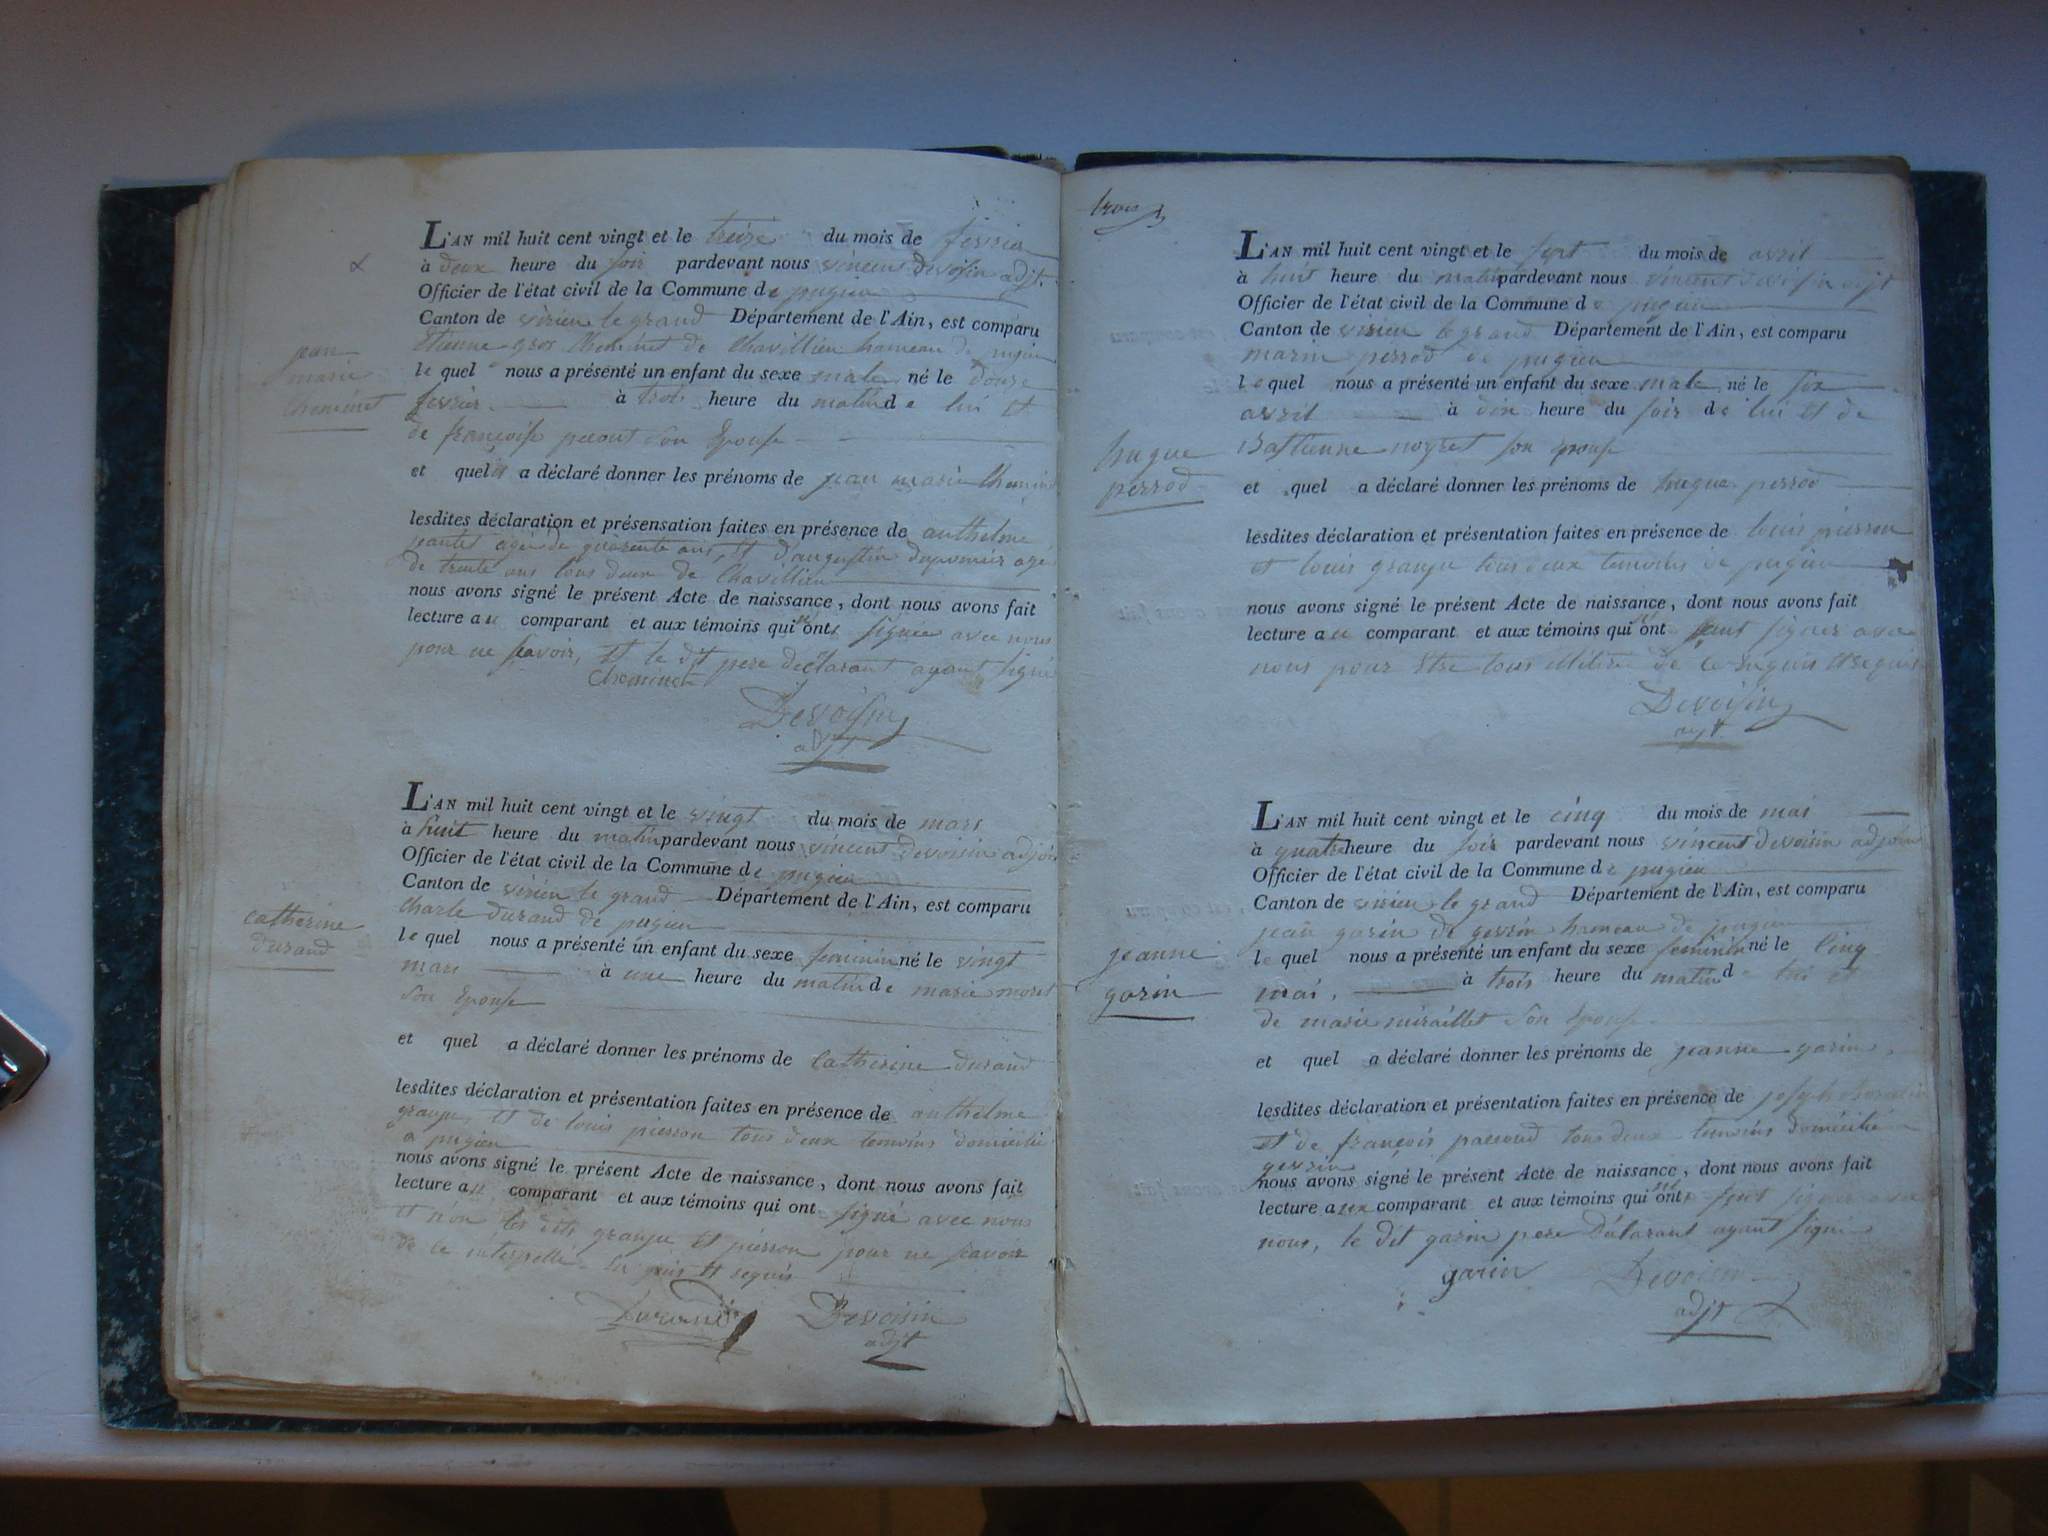 L'AN mil huit cent vingt et le treize du mois de fevrier
à deux heure du soir pardevant nous vincent devoisin adjt.
Officier de l'état civil de la Commune de pugieu
Canton de virieu le grand Département de l'Ain, est comparu
Etienne gros Cheminet de Chavillieu hameau de pugieu
le quel nous a présenté un enfant du sexe male né le douze
fevrier à trois heure du matin de lui et
de françoise son Epouse
et quel a déclaré donner les prénoms de jean marie Cheminet
lesdites déclaration et présensation faites en présence de anthelme
agé de quarente ans, et d'augustin agé
de trente ans tous deux de Chavillieu
nous avons signé le présent Acte de naissance, dont nous avons fait
lecture au comparant et aux témoins qui n'ont signée avec nous
pour ne scavoir, et le dit pere declarant ayant signé
Cheminet
Devoisin
adjt
jean
marie
Cheminet
L'AN mil huit cent vingt et le vingt du mois de mars
à huit heure du matin pardevant nous vincent devoisin adjoint
Officier de l'état civil de la Commune de pugieu
Canton de virieu le grand Département de l'Ain, est comparu
Charle durand de pugieu
le quel nous a présenté un enfant du sexe feminin né le vingt
mars à une heure du matin de marie moret
son Epouse
et quel a déclaré donner les prénoms de Catherine durand
lesdites déclaration et présentation faites en présence de anthelme
granju et de louis pierron tous deux temoins domicilié
a pugieu
nous avons signé le présent Acte de naissance, dont nous avons fait
lecture au comparant et aux témoins qui ont signé avec nous
et non les dits granju et pierron pour ne scavoir
de ce interpellé et requis
Durand Devoisin
adjt
catherine
durand
trois
L'AN mil huit cent vingt et le sept du mois de avril
à huit heure du matin pardevant nous vincent devoisin adjt
Officier de l'état civil de la Commune de pugieu
Canton de virieu le grand Département de l'Ain, est comparu
marin perrod de pugieu
le quel nous a présenté un enfant du sexe male né le six
avril à dix heure du soir de lui et de
Bastienne noyret son epouse
et quel a déclaré donner les prénoms de hugue perrod
lesdites déclaration et présentation faites en présence de louis pierron
et louis granju tous deux temoins de pugieu
nous avons signé le présent Acte de naissance, dont nous avons fait
lecture au comparant et aux témoins qui n'ont signer avec
nous pour etre tous de ce requis
Devoisin
adjt
hugue
perrod
L'AN mil huit cent vingt et le cinq du mois de mai
à quatre heure du soir pardevant nous vincent devoisin adjoint
Officier de l'état civil de la Commune de pugieu
Canton de virieu le grand Département de l'Ain, est comparu
jean garin de gevrin hameau de pugieu
le quel nous a présenté un enfant du sexe feminin né le Cinq
mai, à trois heure du matin d lui et
de marie miraillet son Epouse
et quel a déclaré donner les prénoms de jeanne garin
lesdites déclaration et présentation faites en présence de joseph
et de françois tous deux temoins domicilié a
gevrin
nous avons signé le présent Acte de naissance, dont nous avons fait
lecture aux comparant et aux témoins qui n'ont signer avec
nous, le dit garin pere Déclarant ayant signé
garin Devoisin
adjt
jeanne
garin